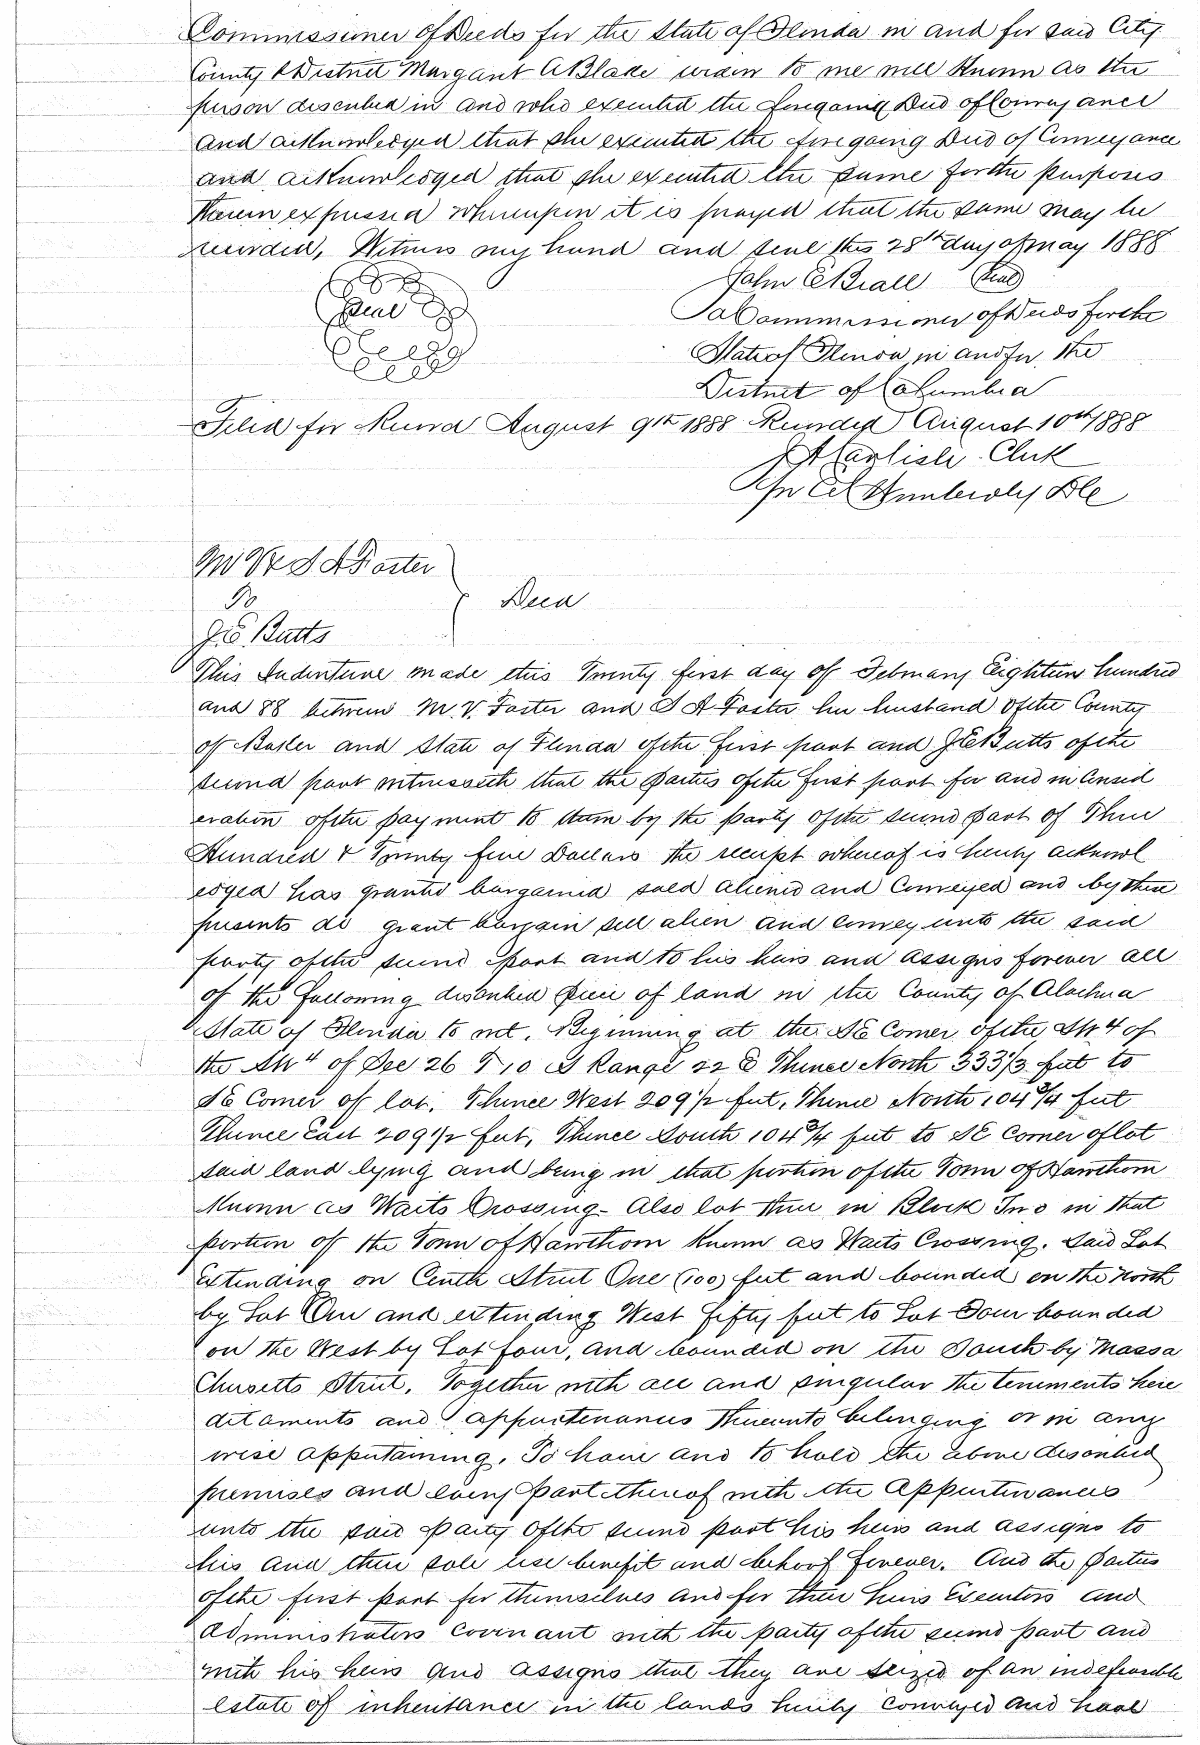 Commissioner of Deeds for the State of Florida in and for said City
County & District Margaret A Blake widow to me well known as the
person described in and who executed the foregoing Deed of Conveyance
and acknowledged that she executed the foregoing Deed of Conveyance
and acknowledged that she executed the same for the purposes
therein expressed whereupon it is prayed that the same may be
recorded, Witness my hand and seal this 28th day of May 1888
John E Beall (Seal)
Seal
a Commissioner of Deeds for the
State of Florida in and for the
District of Columbia
Filed for Record August 9th 1888 Recorded August 10th 1888
J A Carlisle Clerk
Per DC
M V & S A Foster
To
Deed
J E Butts
This Indenture made this Twenty first day of February Eighteen hundred
and 88 between M. V. Foster and S A Foster her husband of the County
of Baker and State of Florida of the first part and J E Butts of the
second part witnesseth that the parties of the first part for and in Consid
eration of the payment to them by the party of the second part of Three
Hundred & Twenty five Dollars the receipt whereof is hereby acknowl
edged has granted bargained sold aliened and Conveyed and by these
presents do grant bargain sell alien and Convey unto the said
party of the second part and to his heirs and assigns forever all
of the following described piece of land in the County of Alachua
State of Florida to wit. Beginning at the SE Corner of the SW 4 of
the SW 4 of Sec 26 T 10 S Range 22 E Thence North 333 1/3 feet to
SE Corner of lot. Thence West 209 1/2 feet, Thence North 104 3/4 feet
Thence East 209 1/2 feet, Thence South 104 3/4 feet to SE Corner of lot
said land lying and being in that portion of the Town of Hawthorn
Known as Waits Crossing - Also lot three in Block Two in that
portion of the Town of Hawthorn known as Waits Crossing. Said Lot
extending on Street One (100) feet and bounded on the north
by Lot One and extending West fifty feet to Lot Four bounded
on the West by Lot four, and bounded on the South by Massa
Chusetts Street, Together with all and singular the tenements here
ditaments and appurtenances thereunto belonging or in any
wise appertaining. To have and to hold the above described
premises and every part thereof with the Appurtenances
unto the said party of the second part his heirs and assigns to
his and their sole use benefit and behoof forever. And the parties
of the first part for themselves and for their heirs Executors and
administrators Covenant with the party of the second part and
with his heirs and assigns that they are seized of an indefeasible
estate of inheritance in the lands hereby conveyed and have